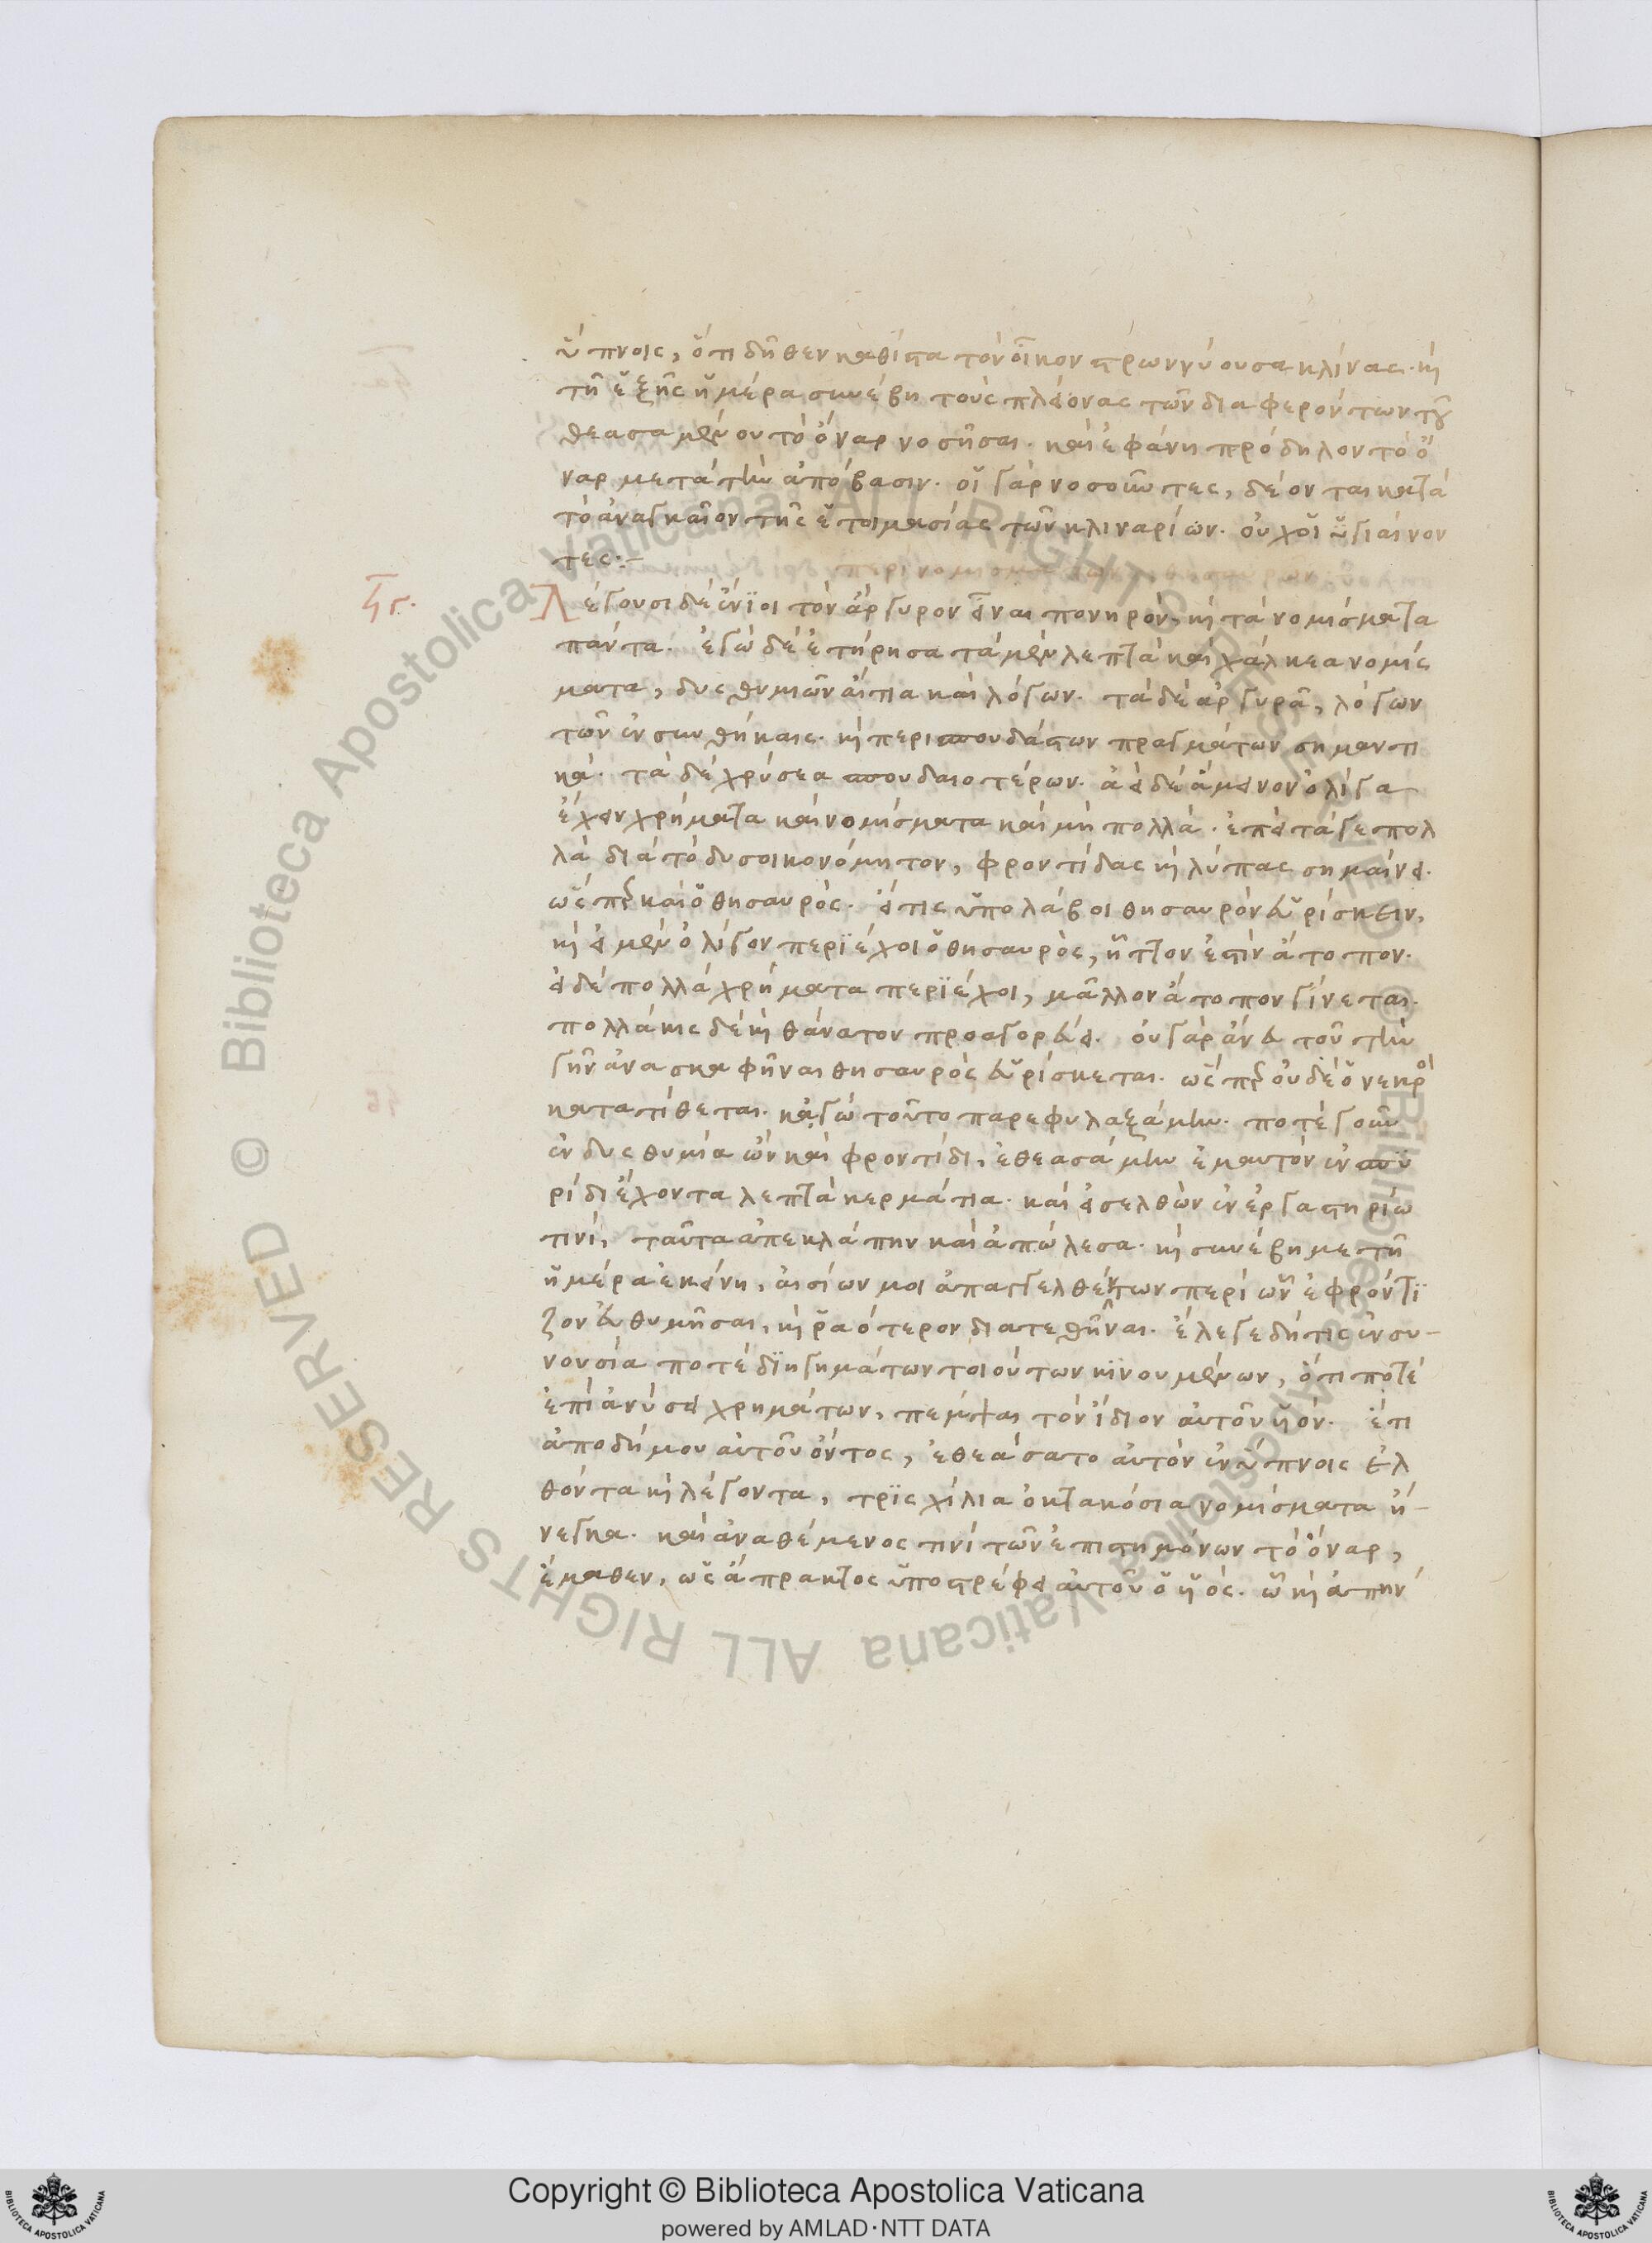 ὕπνοις, ὅτι δῆθεν καθίστα τὸν οἶκον στρωννύουσα κλίνας. κὶ
τῆ ἑξῆς ἡμέρα συνέβη τοὺς πλείονας τῶν διαφερόντων τοῦ
θεασαμένου τὸ ὄναρ νοσῆσαι. καὶ ἐφάνη πρόδηλον τὸ ὄ
ναρ μετὰ τὴν ἀπόβασιν. οἱ γὰρ νοσοῦντες, δέονται κατὰ
τὸ ἀναγκαῖον τῆς ἑτοιμασίας τῶν κλιναρίων. οὐχ οἱ ὑγιαίνον
τες:-
ϟγ. Λέγουσι δὲ ἔνϊοι τὸν ἄργυρον εἶναι πονηρὸν, κὶ τὰ νομίσματα
πάντα. ἐγὼ δὲ ἐτήρησα τὰ μὲν λεπτὰ καὶ χάλκεα νομίς
ματα, δυσθυμιῶν αἴτια καὶ λόγων. τὰ δὲ ἀργυρᾶ, λόγων
τῶν ἐν συνθήκαις. κὶ περὶ σπουδάστων πραγμάτων σημαντι
κά. τὰ δὲ χρύσεα σπουδαιοτέρων. ἀεὶ δὲ ἄμεινον ὀλίγα
ἔχειν χρήματα καὶ νομίσματα καὶ μὴ πολλά. ἐπεὶ τά γε πολ
λὰ διὰ τὸ δυσοικονόμητον, φροντίδας κὶ λύπας σημαίνει.
ὥσπερ καὶ ὁ θησαυρὸς. εἴ τις ὑπολάβοι θησαυρὸν εὑρίσκειν,
κὶ εἰ μὲν ὀλίγον περϊέχοι ὁ θησαυρὸς, ἧττον ἐστὶν ἄτοπον.
εἰ δὲ πολλὰ χρήματα περϊέχοι, μᾶλλον ἄτοπον γίνεται.
πολλάκις δὲ κὶ θάνατον προαγορεύει. οὐ γὰρ ἄνευ τοῦ τὴν
γῆν ἀνασκαφῆναι θησαυρὸς εὑρίσκεται. ὥσπερ οὐδὲ ὁ νεκρὸς
κατατίθεται. κἀγὼ τοῦτο παρεφυλαξάμην. ποτὲ γοῦν
ἐν δυσθυμία ὢν καὶ φροντίδι, ἐθεασάμην ἐμαυτὸν ἐν σπυ
ρίδι ἔχοντα λεπτὰ κερμάτια. καὶ εἰσελθὼν ἐν ἐργαστηρίω
τινὶ, ταῦτα ἀπεκλάπην καὶ ἀπώλεσα. κὶ συνέβη με τῆ
ἡμέρα ἐκείνη, αἰσίων μοι ἀπαγγελθέντων περὶ ὧν ἐφρόντϊ
ζον εὐθυμῆσαι, κὶ ῥαότερον διατεθῆναι. ἔλεγε δή τις ἐν συ-
νουσία ποτὲ διηγημάτων τοιούτων κινουμένων, ὅτι ποτὲ
ἐπὶ ἀνύσει χρημάτων, πέμψαι τὸν ἴδιον αὐτοῦ ὑὸν. ἔτι
ἀποδήμου αὐτοῦ ὄντος, ἐθεάσατο αὐτὸν ἐν ὕπνοις ἐλ
θόντα κὶ λέγοντα, τρϊς χίλια ὀκτακόσια νομίσματα ἤ-
νεγκα. καὶ ἀναθέμενος τινὶ τῶν ἐπιστημόνων τὸ ὄναρ,
ἔμαθεν, ὡς ἄπρακτος ὑποστρέφει αὐτοῦ ὁ ὑός. ὧ κὶ ἀπήν
Biblioteca Apostolica Vaticana ALL RIGHTS RESERVED ©
Copyright © Biblioteca Apostolica Vaticana
powered by AMLAD·NTT DATA
BIBLIOTECA APOSTOLICA VATICANA
BIBLIOTECA APOSTOLICA VATICANA